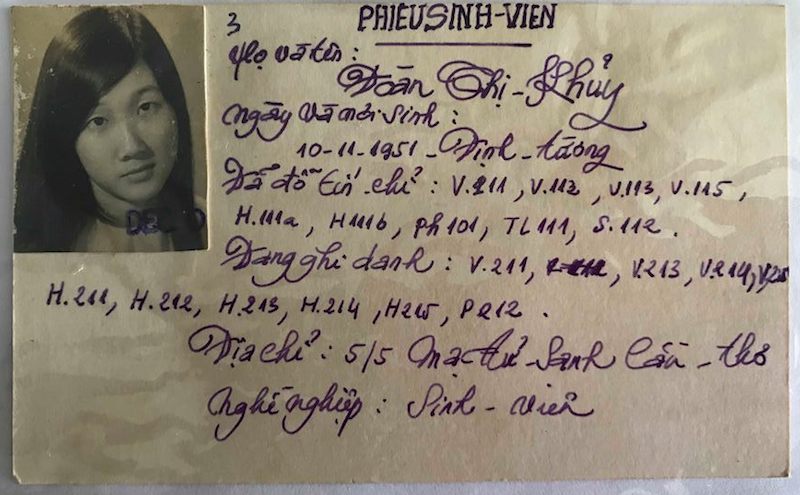 3
PHIẾU SINH-VIÊN
Họ và tên :
Đoàn Thị-Khủy
Ngày và nơi sinh :
10-11-1951 - Định-tường
Đã đỗ tín-chỉ : V.111, V.112, V.113, V.115,
H.111a, H111b, Ph101, TL111, S.112.
Đang ghi danh : V.211, V.213, V.214,
H.211, H.212, H.213, H.214, H215, P212.
Địa chỉ : 5/5 Mạc tử-Sanh Cần-thơ
Nghề nghiệp : Sinh-viên